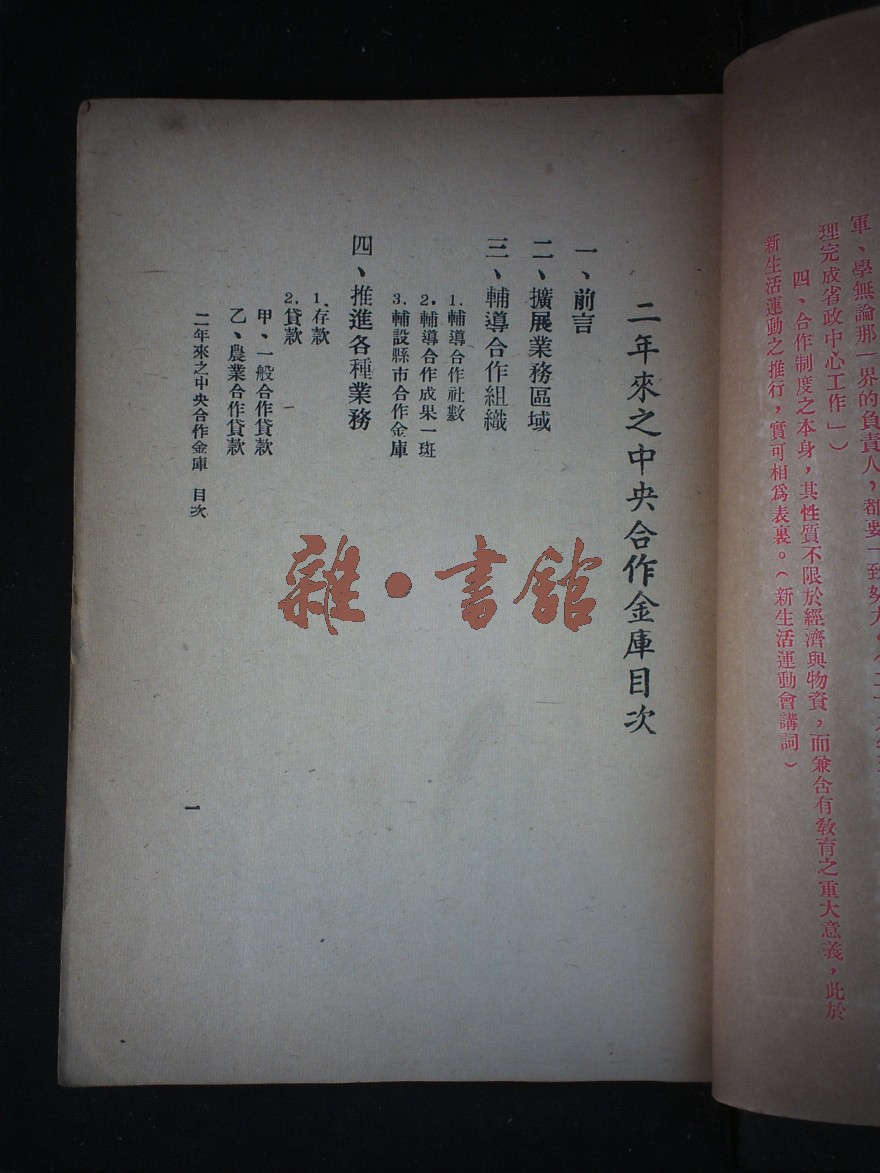 軍、學無論那一界的負責人，都要一致努力
理完成省政中心工作」）
四、合作制度之本身，其性質不限於經濟與物資，而兼含有教育之重大意義，此於
新生活運動之推行，實可相爲表裏。（新生活運動會講詞）
二年來之中央合作金庫目次
一、前言
二、擴展業務區域
三、輔導合作組織
1.輔導合作社數
2.輔導合作成果一斑
3.輔設縣市合作金庫
四、推進各種業務
1.存款
2.貸款
甲、一般合作貸款
乙、農業合作貸款
二年來之中央合作金庫 目次
一
雜·書館